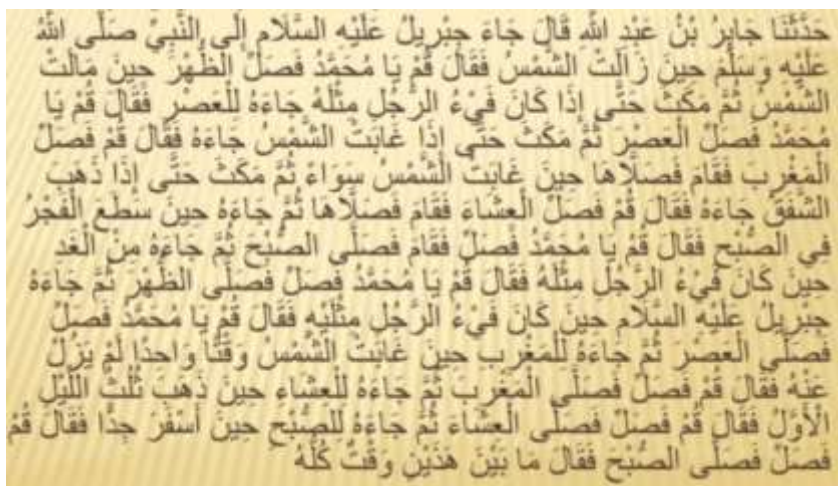 حَدَّثَنَا جَابِرُ بْنُ عَبْدِ اللَّهِ قَالَ جَاءَ جِبْرِيلُ عَلَيْهِ السَّلَام إِلَى النَّبِيِّ صَلَّى اللَّهُ
عَلَيْهِ وَسَلَّمَ حِينَ زَالَتْ الشَّمْسُ فَقَالَ قُمْ يَا مُحَمَّدُ فَصَلِّ الظُّهْرَ حِينَ مَالَتْ
الشَّمْسُ ثُمَّ مَكَثَ حَتَّى إِذَا كَانَ فَيْءُ الرَّجُلِ مِثْلَهُ جَاءَهُ لِلْعَصْرِ فَقَالَ قُمْ يَا
مُحَمَّدُ فَصَلِّ الْعَصْرَ ثُمَّ مَكَثَ حَتَّى إِذَا غَابَتْ الشَّمْسُ جَاءَهُ فَقَالَ قُمْ فَصَلِّ
الْمَغْرِبَ فَقَامَ فَصَلَّاهَا حِينَ غَابَتْ الشَّمْسُ سَوَاءً ثُمَّ مَكَثَ حَتَّى إِذَا ذَهَبَ
الشَّفَقُ جَاءَهُ فَقَالَ قُمْ فَصَلِّ الْعِشَاءَ فَقَامَ فَصَلَّاهَا ثُمَّ جَاءَهُ حِينَ سَطَعَ الْفَجْرُ
فِي الصُّبْحِ فَقَالَ قُمْ يَا مُحَمَّدُ فَصَلِّ فَقَامَ فَصَلَّى الصُّبْحَ ثُمَّ جَاءَهُ مِنْ الْغَدِ
حِينَ كَانَ فَيْءُ الرَّجُلِ مِثْلَهُ فَقَالَ قُمْ يَا مُحَمَّدُ فَصَلِّ فَصَلَّى الظُّهْرَ ثُمَّ جَاءَهُ
جِبْرِيلُ عَلَيْهِ السَّلَام حِينَ كَانَ فَيْءُ الرَّجُلِ مِثْلَيْهِ فَقَالَ قُمْ يَا مُحَمَّدُ فَصَلِّ
فَصَلَّى الْعَصْرَ ثُمَّ جَاءَهُ لِلْمَغْرِبِ حِينَ غَابَتْ الشَّمْسُ وَقْتًا وَاحِدًا لَمْ يَزُلْ
عَنْهُ فَقَالَ قُمْ فَصَلِّ فَصَلَّى الْمَغْرِبَ ثُمَّ جَاءَهُ لِلْعِشَاءِ حِينَ ذَهَبَ ثُلُثُ اللَّيْلِ
الْأَوَّلُ فَقَالَ قُمْ فَصَلِّ فَصَلَّى الْعِشَاءَ ثُمَّ جَاءَهُ لِلصُّبْحِ حِينَ أَسْفَرَ جِدًّا فَقَالَ قُمْ
فَصَلِّ فَصَلَّى الصُّبْحَ فَقَالَ مَا بَيْنَ هَذَيْنِ وَقْتٌ كُلُّهُ